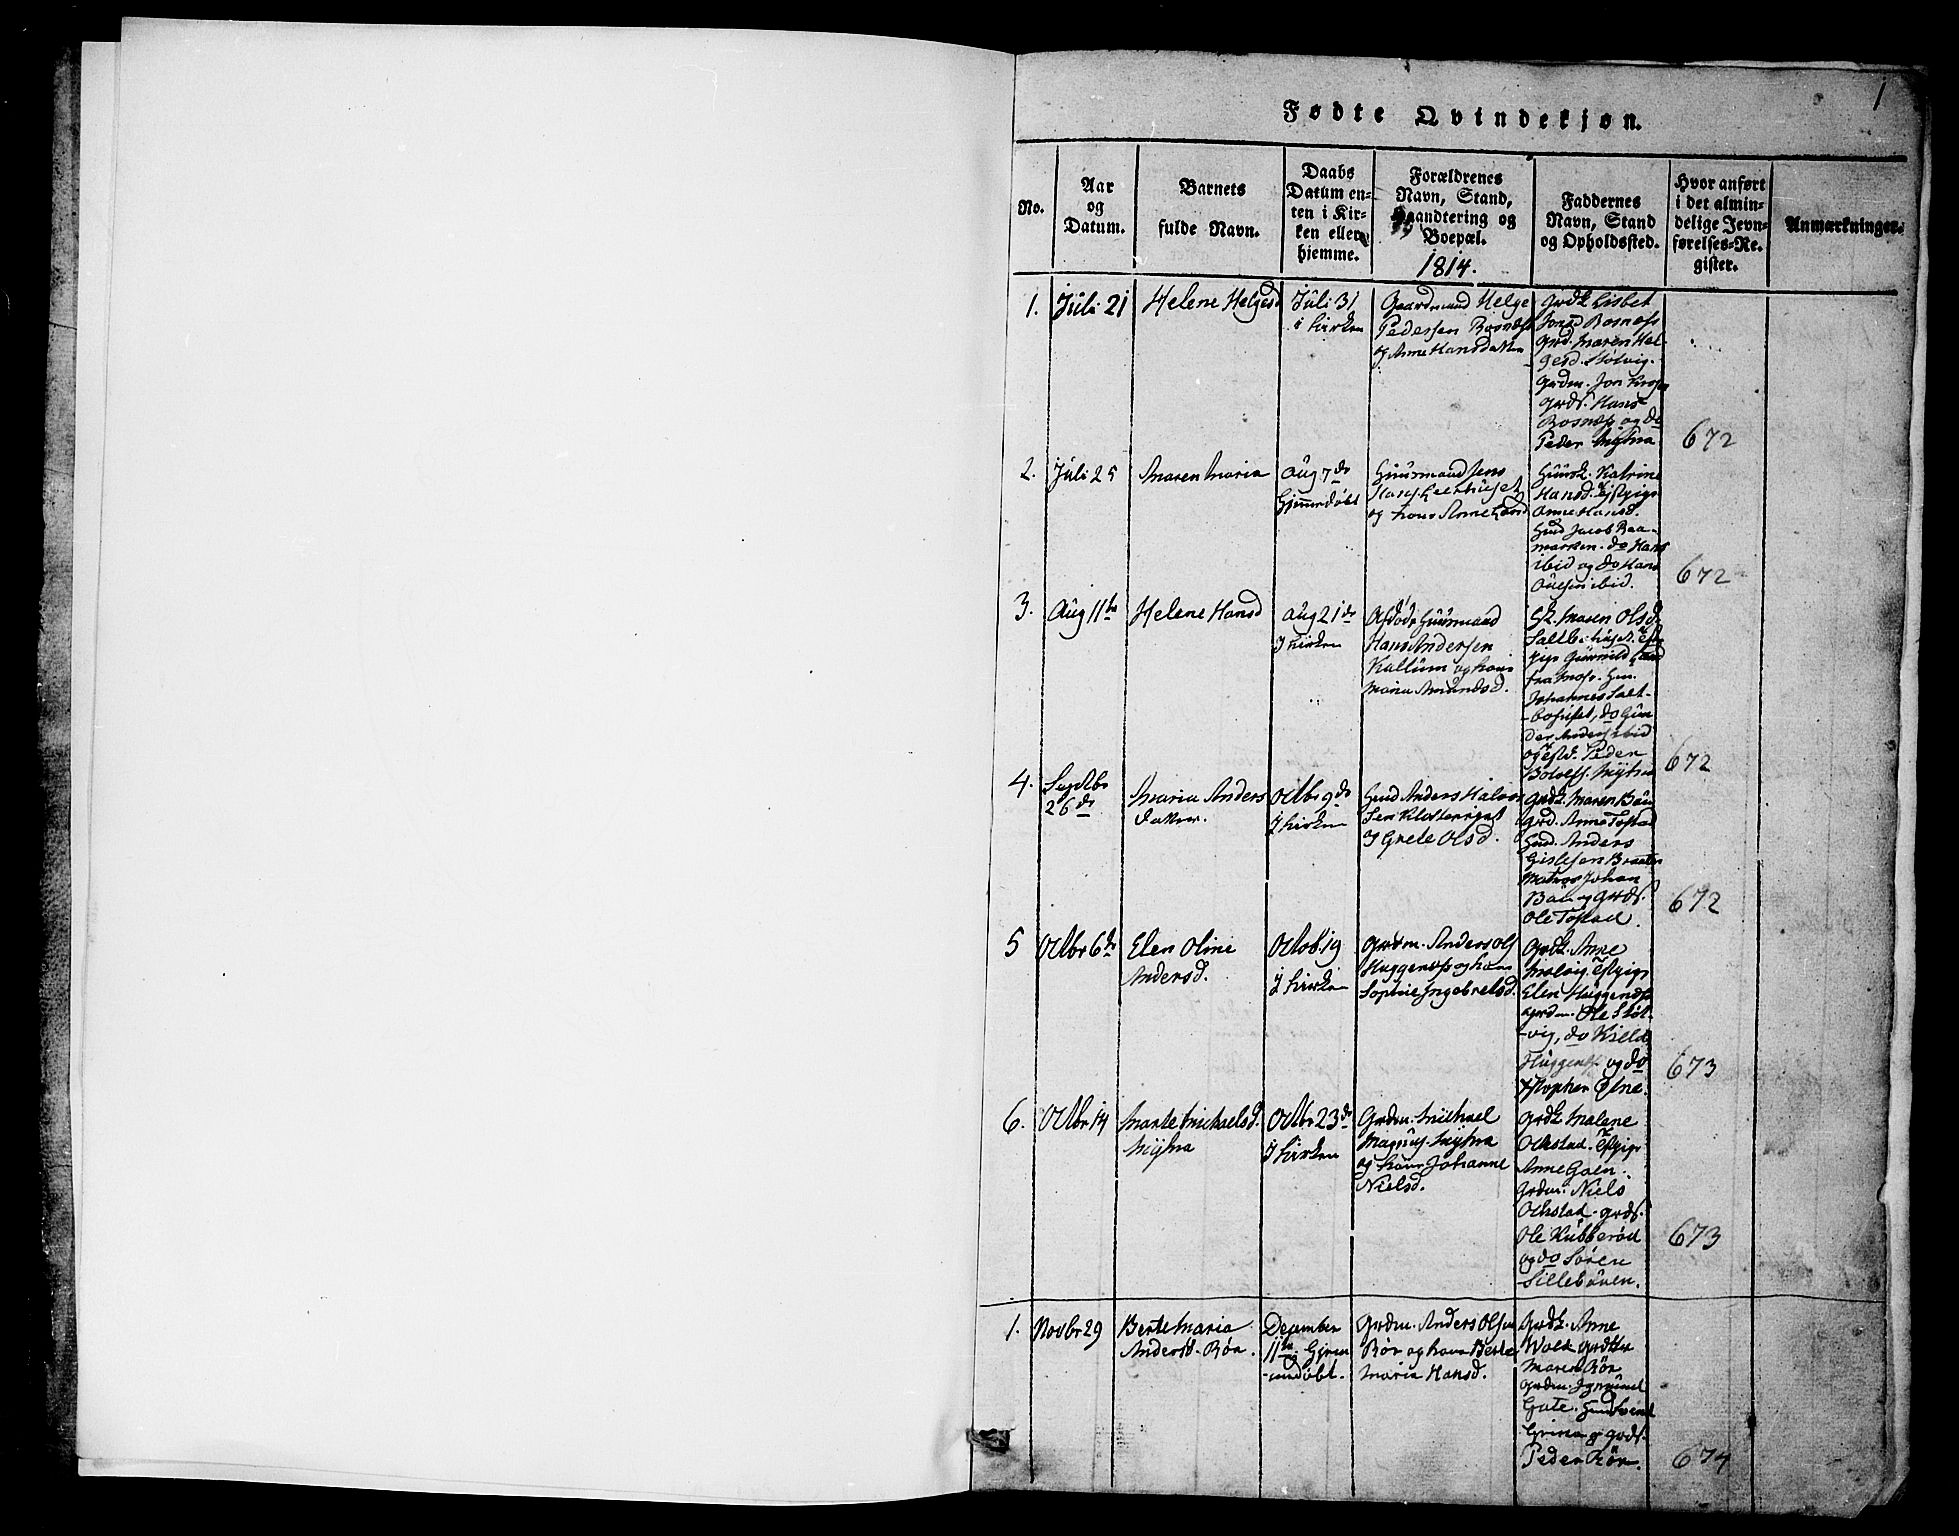 1
Fødte Qvindekjøn.
No.
Aar
og
Datum.
Barnets
fulde Navn.
Daabs
Datum en-
ten i Kir-
ken eller
hjemme.
Forældrenes
Navn, Stand,
Haandtering og
Boepæl.
1814.
Faddernes
Navn, Stand
og Opholdssted.
Hvor anført
i det almin-
delige Jevn-
førelses-Re-
gister.
Anmærkninger.
1.
Juli 21
Helene Helgesd
Juli 31
i Kirken
Gaardmand Helge
Pedersen Rosnæss
og Anne Hansdatter
Grdk. Lisbet
Jonsd Rosnæss
Grd. Maren Hel-
gesd. Stølvig.
Grdm. Jon
Grds. Hans
Rosnæss og do
Peder Myhra
672
2.
Juli 25
Maren Maria
Aug 7de
Hjemmedøbt
Huusmand Jens
Hans Leerhuset
og hans Anne
Huusk. Katrine
Hansd.
Anne Hansd.
Hmd Jacob Raa-
marken. do Hans
ibid og do Hans
Ouesen ibid.
672
3.
Aug 11te
Helene Hansd
Aug 21de
J Kirken
Huusmand
Hans Andersen
Kallum og hans
Maria Amundsd.
Maren Olsd
fra Moss.
Johannes Salt-
boehuset, do Gun
der Anders ibid
Peder
Myhra
672
4.
Septbr
26de
Maria Anders
datter.
Octbr 9de
J Kirken
Hmd Anders Halvor
sen Klosteriget
og Grete Olsd.
Grdk. Maren Bøu
Grd. Anne Tofstad
Hmd. Anders
Gislesen Braaten
Matros Johan
Bøu og Grds.
Ole Tofstad.
672
5
Octbr 6de
Elen Oline
Andersd.
Octob. 19
J Kirken
Grdm. Anders Ols
Huggenæss og hans
Sophie Ingebretsd.
Grdk. Anne
Elen Huggenæss
Grdm. Ole Støl-
vig, do Kield
Huggenæss og do
673
6.
Octbr 14
Marte Michaelsd.
Myhra
Octbr 23de
J Kirken
Grdm. Michael
Magnus. Myhra
og hans Johanne
Nielsd.
Grdk Malene
Ockstad.
Anne Goen.
Grdm. Niels
Ockstad. Grds.
Ole Kubberød
og do Søren
Lillebøuen.
673
1.
Novbr 29
Berte Maria
Andersd. Rør.
December
11te Hjem
medøbt.
Grdm. Anders Olsen
Rør og hans Berte
Maria Hansd.
Grdk. Anne
Wolk Grdtter
Maren Rør
Gate.
og Grds.
Peder Rør.
674